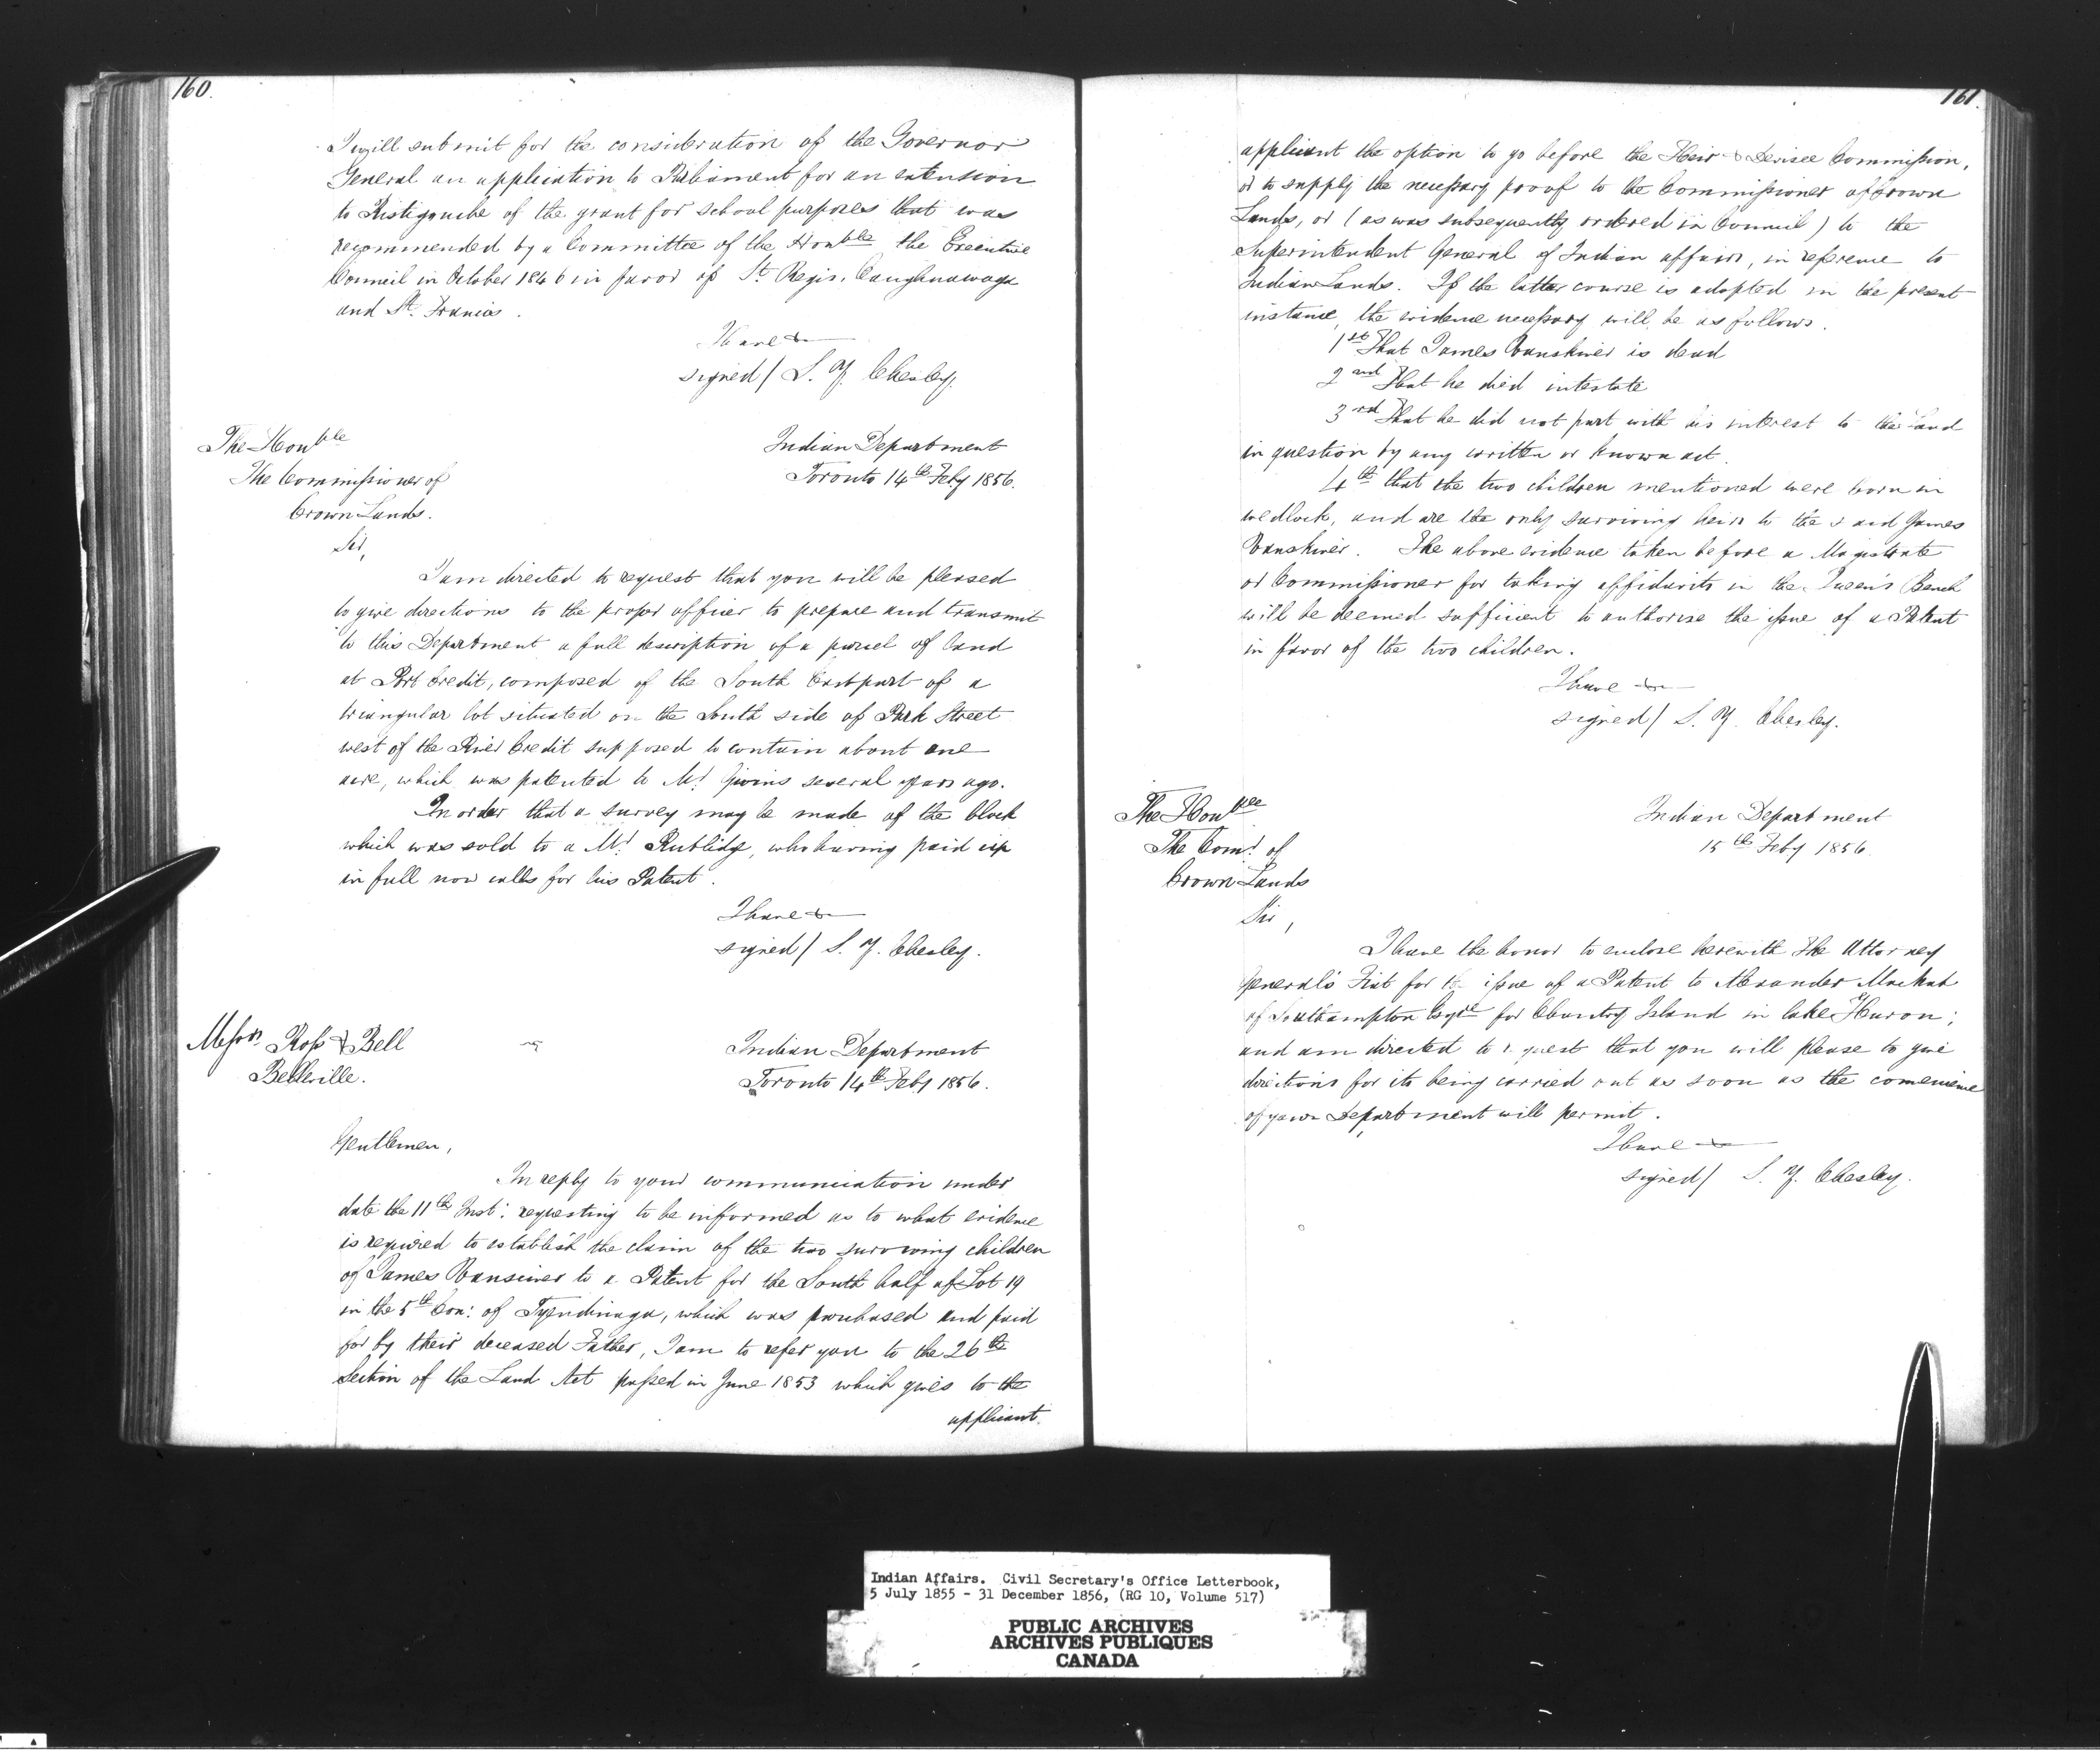 160.
I will submit for the consideration of the Governor
General an application to Parliament for an extension
to Ristigouche of the grant for school purposes that was
recommended by a Committee of the Honble the Executive
Council in October 1846 in favor of St. Regis, Caughnawaga
and St. Francis.
I have &c
signed/ S. Y. Chesley.
The Honble
The Commissioner of
Crown Lands.
Indian Department
Toronto 14th Feby 1856.
Sir,
I am directed to request that you will be pleased
to give directions to the proper officer to prepare and transmit
to this Department a full description of a parcel of land
at Port Credit, composed of the South East part of a
triangular lot situated on the South side of Park Street
west of the River Credit supposed to contain about one
acre, which was patented to Mr. Givins several years ago.
In order that a survey may be made of the block
which was sold to a Mr. Rutlidge, who having paid up
in full now calls for his Patent.
I have &c
signed/ S. Y. Chesley.
Messrs. Ross & Bell
Belleville.
Indian Department
Toronto 14th Feby 1856.
Gentlemen,
In reply to your communication under
date the 11th Inst: requesting to be informed as to what evidence
is required to establish the claim of the two surviving children
of James to a Patent for the South half of Lot 19
in the 5th Con: of Tyendinaga, which was purchased and paid
for by their deceased Father, I am to refer you to the 26th
Section of the Land Act passed in June 1853 which gives to the
applicant.
161.
applicant the option to go before the Heir & Devisee Commission,
or to supply the necessary proof to the Commissioner of Crown
Lands, or (as was subsequently ordered in Council) to the
Superintendent General of Indian affairs, in reference to
Indian Lands. If the latter course is adopted in the present
instance, the evidence necessary will be as follows.
1st That James is dead
2nd That he died intestate
3rd That he did not part with his interest to the Land
in question by any written or known act.
4th that the two children mentioned were born in
wedlock, and are the only surviving heirs to the said James
The above evidence taken before a Magistrate
or Commissioner for taking affidavits in the Queen's Bench
will be deemed sufficient to authorise the issue of a Patent
in favor of the two children.
I have &c
signed/ S. Y. Chesley.
The Honble
The Comr. of
Crown Lands
Indian Department
15th Feby 1856.
Sir,
I have the honor to enclose herewith the Attorney
General's Fiat for the issue of a Patent to Alexander MacNab
of Southampton Esqre for Chantry Island in lake Huron;
and am directed to request that you will please to give
directions for its being carried out as soon as the convenience
of your Department will permit.
I have &c
signed/ S. Y. Chesley.
Indian Affairs. Civil Secretary's Office Letterbook,
5 July 1855 - 31 December 1856, (RG 10, Volume 517)
PUBLIC ARCHIVES
ARCHIVES PUBLIQUES
CANADA